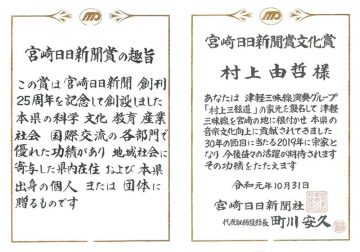 宮崎日日新聞賞の趣旨
この賞は宮崎日日新聞 創刊
25周年を記念して創設しました
本県の科学 文化 教育 産業
社会 国際交流の各部門で
優れた功績があり 地域社会に
寄与した県内在住 および 本県
出身の個人 または 団体に
贈るものです
宮崎日日新聞賞文化賞
村上由哲 様
あなたは 津軽三味線演奏グループ
「村上三絃道」の家元を襲名して 津軽
三味線を宮崎の地に根付かせ 本県の
音楽文化向上に貢献されてきました
30年の節目に当たる2019年に宗家と
なり 今後益々の活躍が期待されます
その功績をたたえます
令和元年10月31日
宮崎日日新聞社
代表取締役社長 町川安久